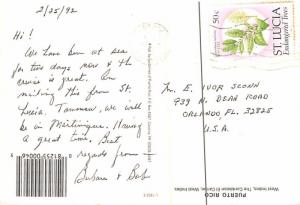 2/25/92
Hi!
We have been at sea
for two days now & the
service is great. I'm
mailing this from St.
Lucia. Tomorrow, we will
be in Martinique. Having
a great time. Best
regards from
Barbara & Bob
50¢
ST. LUCIA
Endangered Trees
Mr. E. IVOR SCONN
939 N. DEAN ROAD
ORLANDO, FL 32825
U.S.A.
PUERTO RICO
West Indies, The Caribbean, El Caribe, West Indies